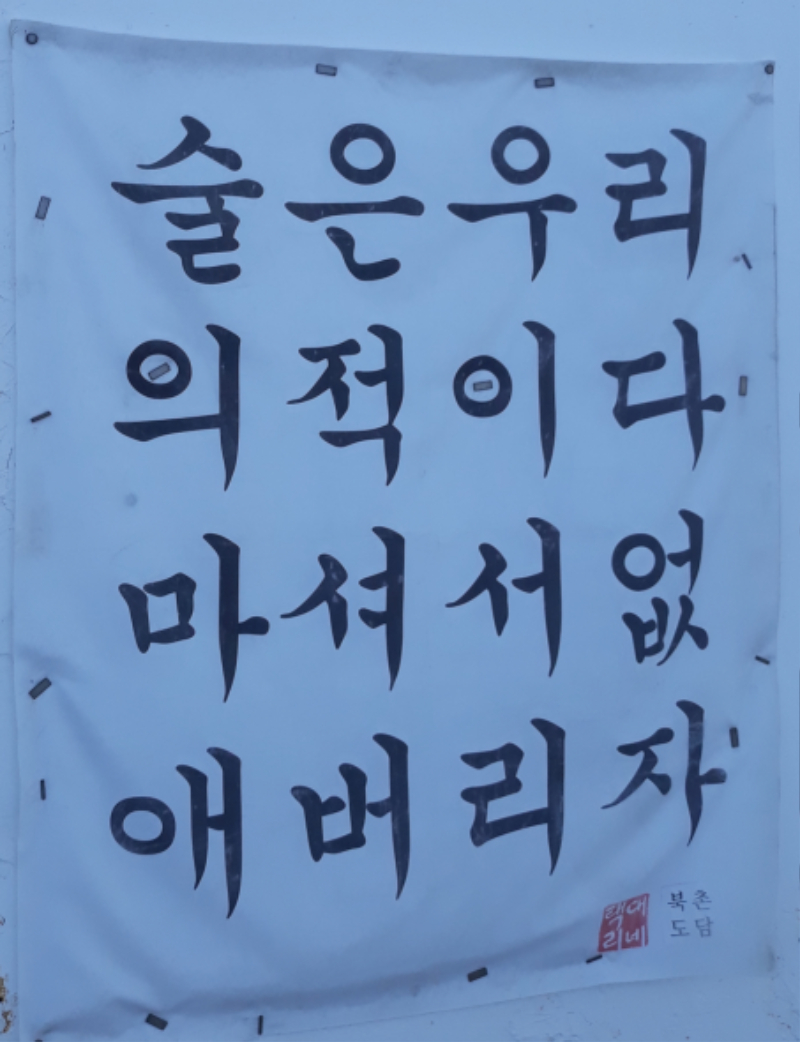 술은우리
의적이다
마셔서없
애버리자
북촌
도담